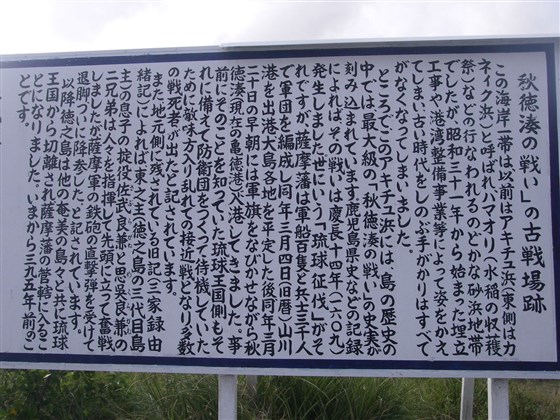 秋徳湊の戦い」の古戦場跡
この海岸一帯は以前はアキチュ浜(東側はカ
ネィク浜)と呼ばれハマオリ(水稲の収穫
祭)などの行なわれるのどかな砂浜地帯
でしたが、昭和三十一年から始まった埋立
工事や、港湾整備事業等によって姿をかえ
てしまい、古い時代をしのぶ手がかりはすべて
がなくなってしまいました。
ところでこのアキチュ浜には、島の歴史の
中では最大級の「秋徳湊の戦い」の史実が
刻み込まれています。鹿児島県史などの記録
によれば、その戦いは慶長十四年(一六〇九)
発生しました。世にいう「琉球征伐」がそ
れですが、薩摩藩は軍船百隻と共に三千人
で軍団を編成し同年三月四日(旧暦)山川
港を出港大島各地を平定した後同年三月
二十日の早朝には軍旗をなびかせながら秋
徳湊(現在の亀徳港)へ入港してきました。事
前にそのことを知っていた琉球王国側もそ
れに備えて防衛団をつくって待機していた
ために敵味方入り乱れての接近戦となり多数
の戦死者が出たと記されています。
また地元側に残されている旧記(三家録由
緒記)によれば東之主(徳之島の三代目島
主)の息子の掟役佐武良兼と思呉良兼の
二兄弟は人々を指揮して先頭に立って奮戦
しましたが薩摩軍の鉄砲の直撃弾を受けて
退脚ついに降参した。と記されています。
以降徳之島は他の奄美の島々と共に琉球
王国から切離され薩摩藩の管轄に入るこ
とになりました。いまから三九五年前のこ
とです。